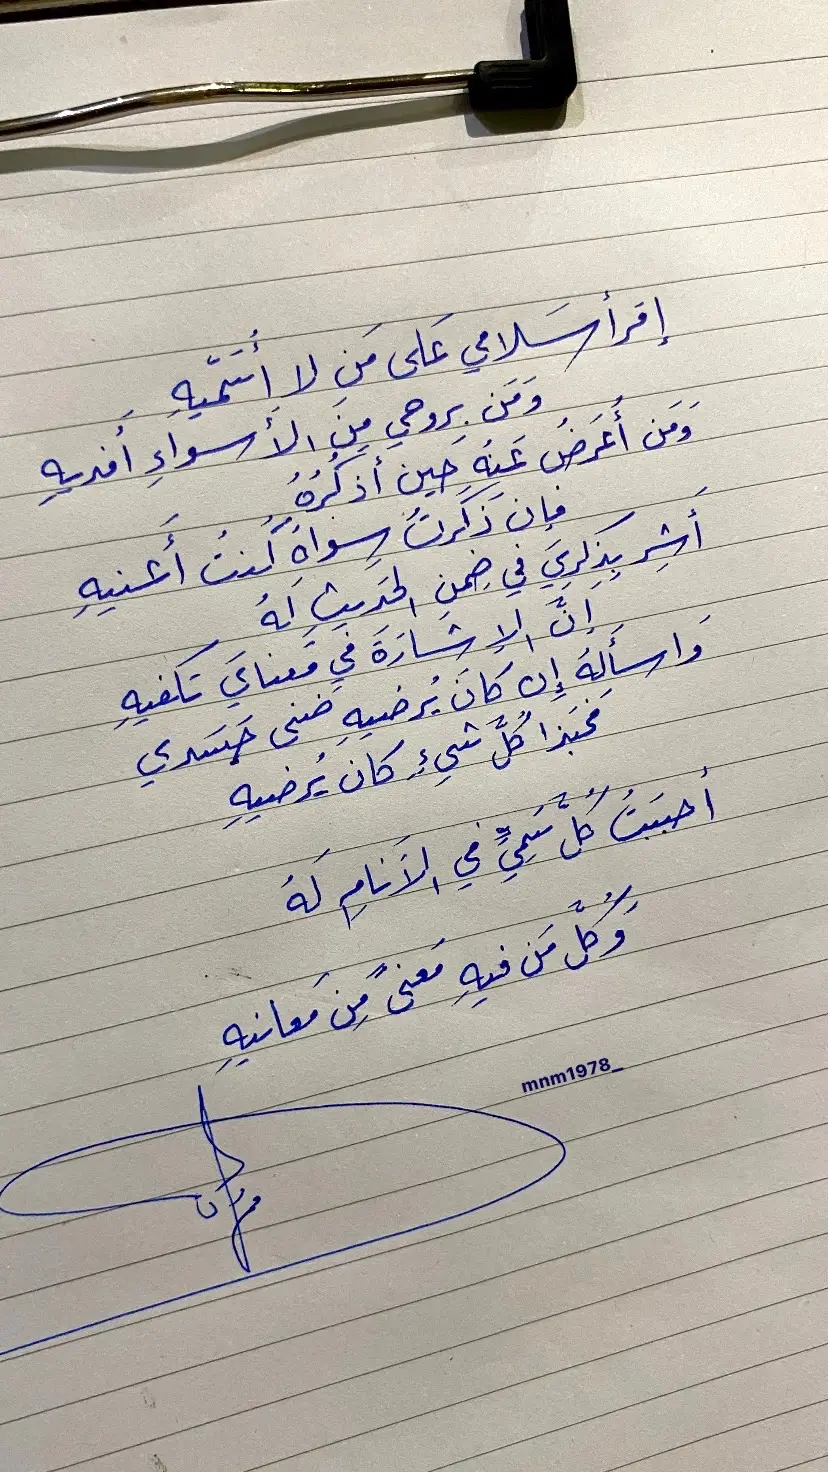 إقرأ سَلامي عَلى مَن لا أُسَمّيهِ
وَمَن بِروحي مِنَ الأَسواءِ أَفديهِ
وَمَن أُعَرِّضُ عَنهُ حينَ أَذكُرُهُ
فإِن ذَكَرتُ سِواهُ كُنتُ أَعنيهِ
أَشِر بِذِكرِيَ في ضِمنِ الحَديثِ لَهُ
إِنَّ الإِشارَةَ في مَعنايَ تَكفيهِ
وَاسأَلهُ إِن كانَ يُرضيهِ ضَنى جَسَدي
فَحَبَذا كُلُّ شَيءٍ كانَ يُرضيهِ
أَحبَبتُ كُلَّ سَمِيٍّ في الأَنامِ لَهُ
وَكُلَّ مَن فيهِ مَعنىً مِن مَعانيهِ
mnm1978_